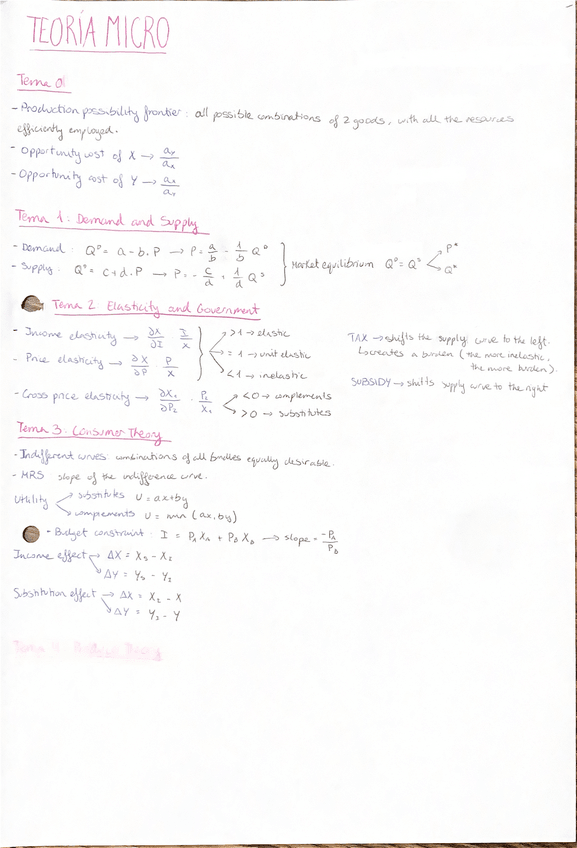 TEORÍA MICRO
Tema 0
- Production possibility frontier: all possible combinations of 2 goods, with all the resources
efficiently employed.
- Opportunity cost of X → ay/ax
- Opportunity cost of Y → ax/ay
Tema 1: Demand and Supply
- Demand: Q^D = a - b.P → P = a/b - 1/b Q^D
- Supply: Q^S = c + d.P → P = - c/d + 1/d Q^S
Market equilibrium Q^D = Q^S
P*
Q*
Tema 2 Elasticity and Government
- Income elasticity → ∂X/∂I I/X
- Price elasticity → ∂X/∂P P/X
> 1 → elastic
= 1 → unit elastic
< 1 → inelastic
- Cross price elasticity → ∂X₁/∂P₂ . P₂/X₁
< 0 → complements
> 0 → substitutes
TAX → shifts the supply curve to the left.
↳ creates a burden (the more inelastic,
the more burden).
SUBSIDY → shifts supply curve to the right
Tema 3: Consumer Theory
- Indifferent curves: combinations of all bundles equally desirable.
- MRS slope of the indifference curve.
Utility → substitutes U = ax+by
→ complements U = min (ax, by)
- Budget constraint: I = PA XA + PB XB → slope = -PA/PB
Income effect → ΔX = X₃ - X₂
→ ΔY = Y₃ - Y₂
Substitution effect → ΔX = X₂ - X
→ ΔY = Y₂ - Y